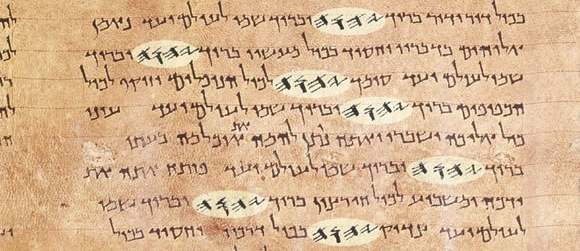 בכול דור ודור ברוך 𐤉𐤄𐤅𐤄 וברוך שמו לעולם ועד נאמן
אלוהים בדבריו וחסיד בכול מעשיו ברוך 𐤉𐤄𐤅𐤄 וברוך
שמו לעולם ועד סומך 𐤉𐤄𐤅𐤄 לכול הנופלים וזוקף לכול
הכפופים ברוך 𐤉𐤄𐤅𐤄 וברוך שמו לעולם ועד עיני
כול אליכה ישברו ואתה נותן להמה את אוכלמה בעתו
ברוך 𐤉𐤄𐤅𐤄 וברוך שמו לעולם ועד פותח אתה את
ידכה ומשביע לכול חי רצון ברוך 𐤉𐤄𐤅𐤄 וברוך שמו
לעולם ועד צדיק 𐤉𐤄𐤅𐤄 בכול דרכיו וחסיד בכול